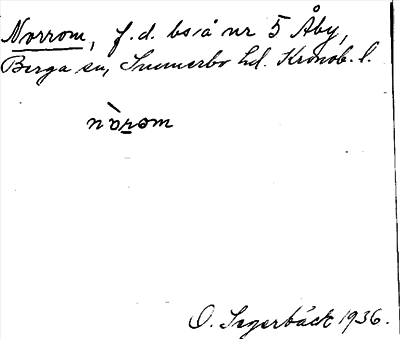 Norrom, f.d. bs å nr 5 Åby,
Berga sn, Sunnerbo hd. Kronob. l.
nò̱rəm
O. Segerbäck 1936.